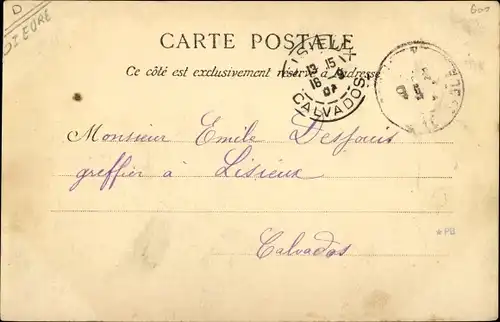 D
27 EURE
600
CARTE POSTALE
Ce côté est exclusivement réservé à l'adresse
LISIEUX
13 15
18 9
04
CALVADOS
Monsieur Emile Desjouis
greffier à Lisieux
Calvados
*PB